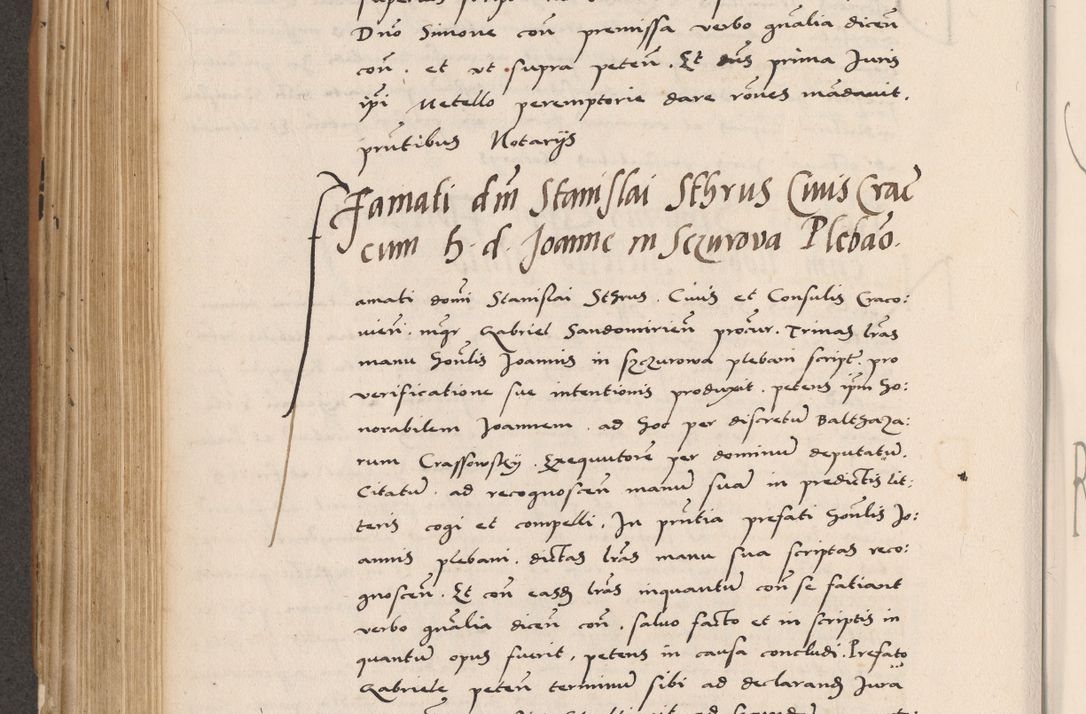 Dno Simone con premissa verbo gnalia dicen
con. et ut supra peten. Et dns prima Juris
ipi Metello peremptorie dare rones mandavit.
pntibus Notariis
Famati dni Stanislai Sthrus Civis Crac
cum h. d. Joanne in Sczurova Plebano.
amati domi Stanislai Sthrus. Civis et Consulis Craco:
vien. mgr Gabriel Sandomirien procur. Trinas lras
manu honlis Joannis in Szczurowa plebani script. pro
verificatione sue intentionis produxit. petens ipm ho:
norabilem Joannem. ad hoc per discretum Balthaza:
rum Crassowsky. Exequutore per dominum deputatum.
Citatum. ad recognoscen manum suam in predictis lit:
teris cogi et compelli. In pntia prefati honlis Jo:
annis plebani. dictas lras manu sua scriptas reco:
gnoscen. Et con easd lras inquantum con se fatiant
verbo gnalia dicen con. salvo facto et in scriptis in
quantum opus fuerit. petens in causa concludi. Prefato
Gabriele peten terminum sibi ad declarand Jura